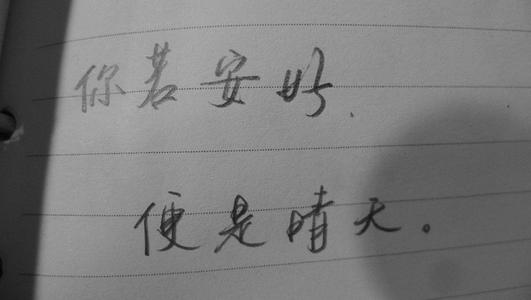 你若安好、
便是晴天。